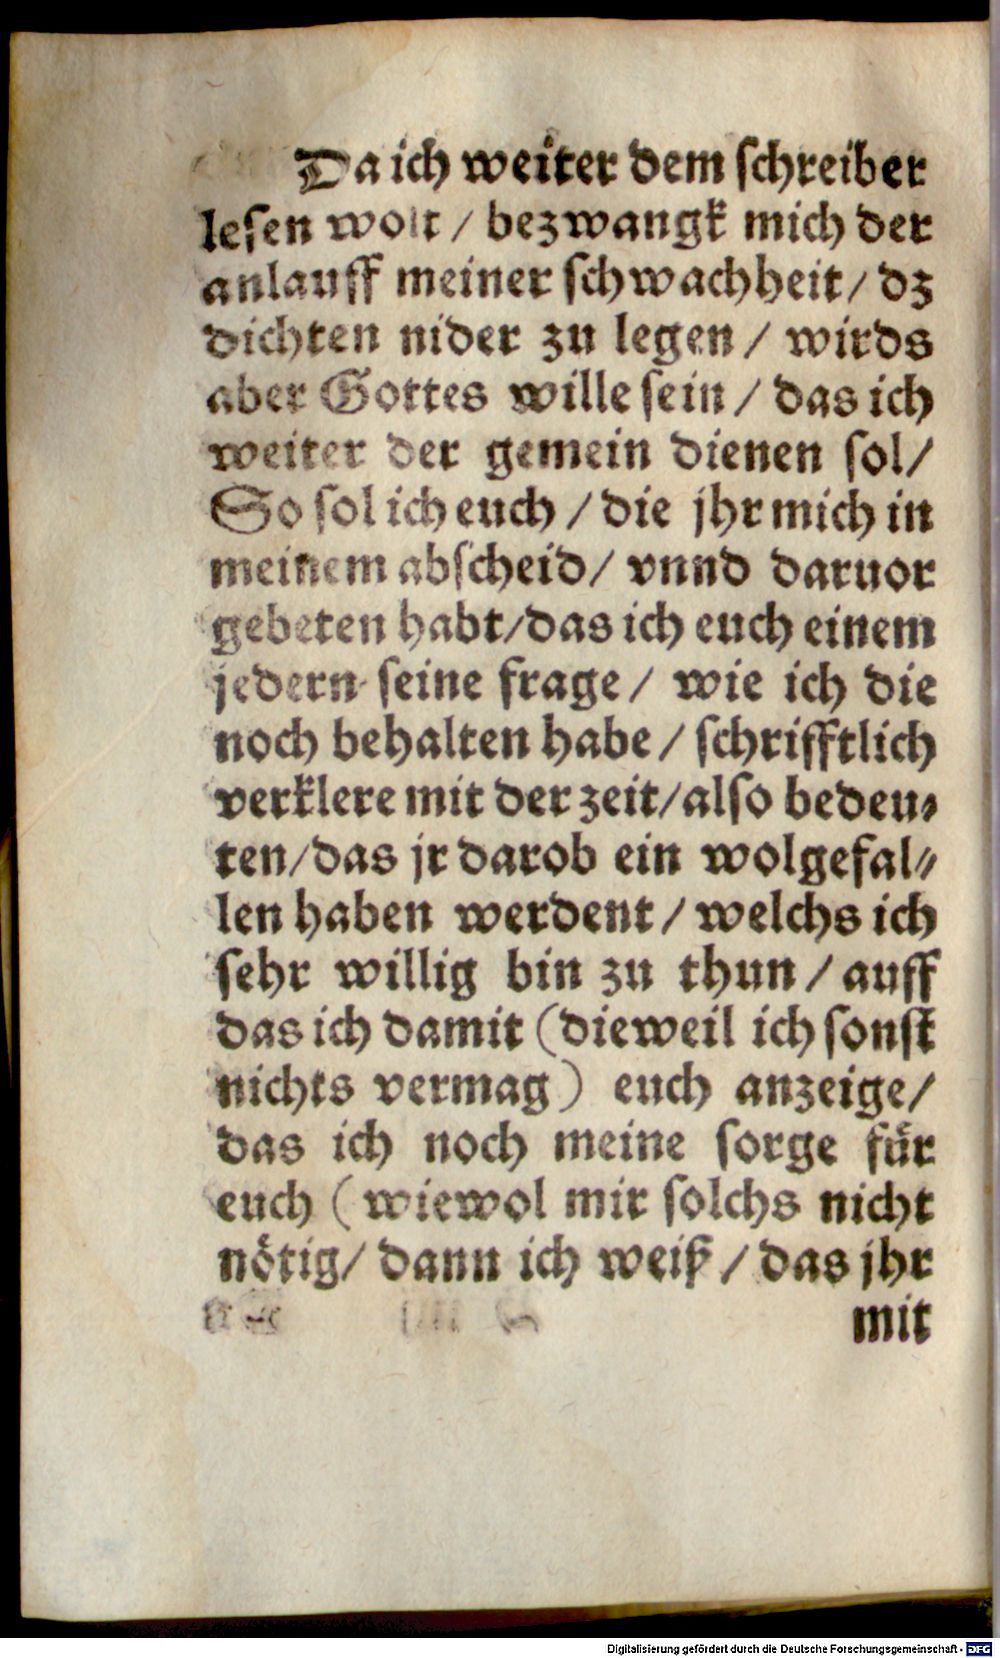 Da ich weiter dem schreiber
lesen wolt / bezwangk mich der
anlauff meiner schwachheit / dz
dichten nider zu legen / wirds
aber Gottes wille sein / das ich
weiter der gemein dienen sol /
So sol ich euch / die jhr mich in
meinem abscheid / vnnd daruor
gebeten habt / das ich euch einem
jedern seine frage / wie ich die
noch behalten habe / schrifftlich
verklere mit der zeit / also bedeu-
ten / das jr darob ein wolgefal-
len haben werdent / welchs ich
sehr willig bin zu thun / auff
das ich damit (dieweil ich sonst
nichts vermag) euch anzeige /
das ich noch meine sorge für
euch (wiewol mir solchs nicht
nötig / dann ich weiß / das jhr
mit
Digitalisierung gefördert durch die Deutsche Forschungsgemeinschaft - DFG